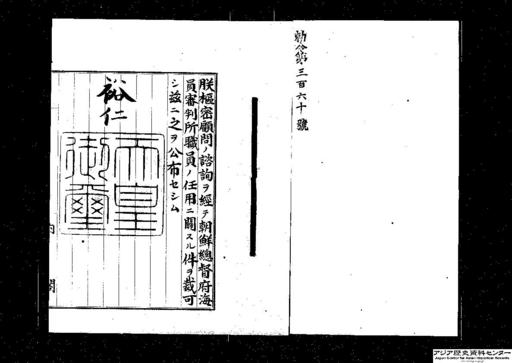 勅令第三百六十號
朕樞密顧問ノ諮詢ヲ經テ朝鮮總督府海
員審判所職員ノ任用ニ關スル件ヲ裁可
シ玆ニ之ヲ公布セシム
裕仁
天皇
御璽
内閣
アジア歴史資料センター
Japan Center for Asian Historical Records